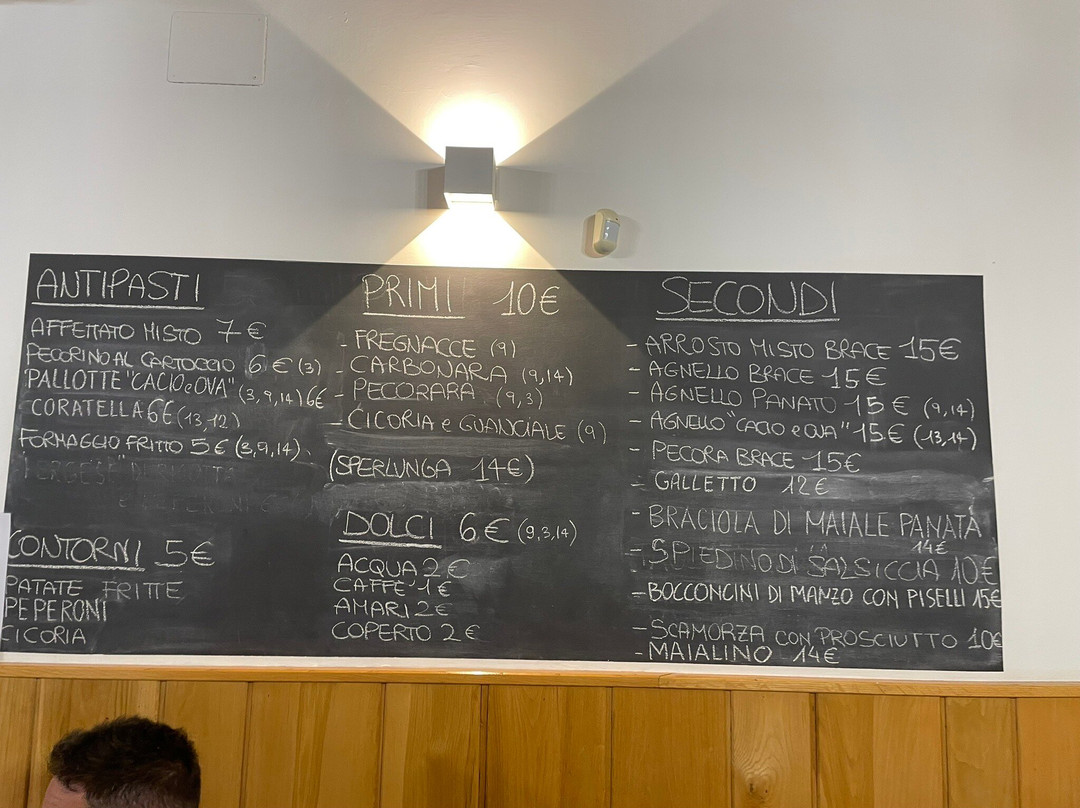 ANTIPASTI
AFFETTATO MISTO 7€
PECORINO AL CARTOCCIO 6€ (3)
PALLOTTE "CACIO e OVA" (3,9,14) 6€
CORATELLA 6€ (13,12)
FORMAGGIO FRITTO 5€ (3,9,14)
CONTORNI 5€
PATATE FRITTE
PEPERONI
CICORIA
PRIMI 10€
- FREGNACCE (9)
- CARBONARA (9,14)
- PECORARA (9,3)
- CICORIA e GUANCIALE (9)
(SPERLUNGA 14€)
DOLCI 6€ (9,3,14)
ACQUA 2€
CAFFE' 1€
AMARI 2€
COPERTO 2€
SECONDI
- ARROSTO MISTO BRACE 15€
- AGNELLO BRACE 15€
- AGNELLO PANATO 15€ (9,14)
- AGNELLO "CACIO e OVA" 15€ (13,14)
- PECORA BRACE 15€
- GALLETTO 12€
- BRACIOLA DI MAIALE PANATA
14€
- SPIEDINO DI SALSICCIA 10€
- BOCCONCINI DI MANZO CON PISELLI 15€
- SCAMORZA CON PROSCIUTTO 10€
- MAIALINO 14€